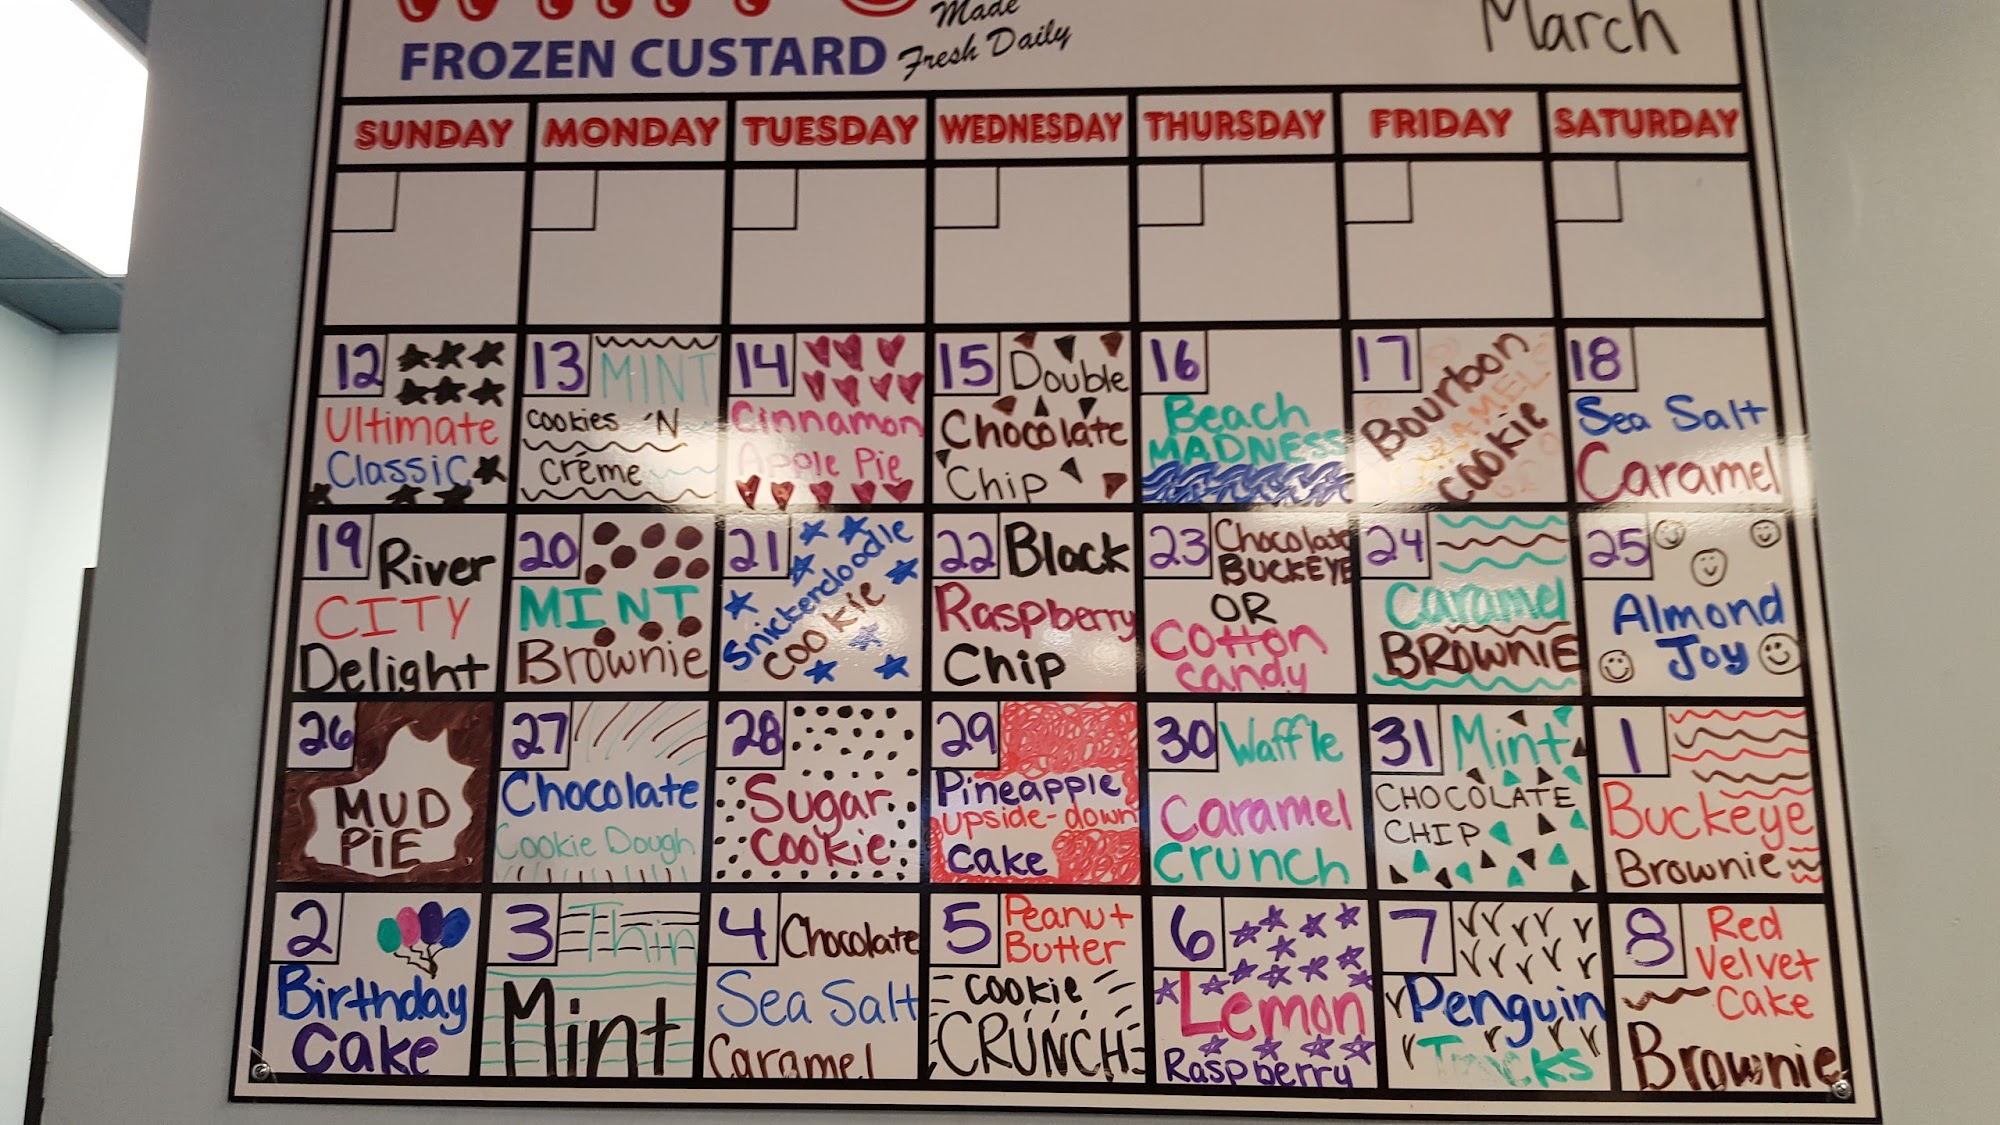 Made
Fresh Daily
FROZEN CUSTARD
March
SUNDAY MONDAY TUESDAY WEDNESDAY THURSDAY FRIDAY SATURDAY
12
Ultimate
Classic
13
MINT
Cookies 'N
Crème
14
Cinnamon
Apple Pie
15
Double
Chocolate
Chip
16
Beach
MADNESS
17
Bourbon
Cookie
18
Sea Salt
Caramel
19
River
CITY
Delight
20
MINT
Brownie
21
Snickerdoodle
Cookie
22
Black
Raspberry
Chip
23
Chocolate
BUCKEYE
OR
Cotton
candy
24
Caramel
BROWNIE
25
Almond
Joy
26
MUD
PiE
27
Chocolate
Cookie Dough
28
Sugar
Cookie
29
Pineapple
upside-down
cake
30
Waffle
Caramel
Crunch
31
Mint
CHOCOLATE
CHIP
1
Buckeye
Brownie
2
Birthday
Cake
3
Thin
Mint
4
Chocolate
Sea Salt
Caramel
5
Peanut
Butter
Cookie
CRUNCH
6
Lemon
Raspberry
7
Penguin
Tracks
8
Red
Velvet
Cake
Brownie